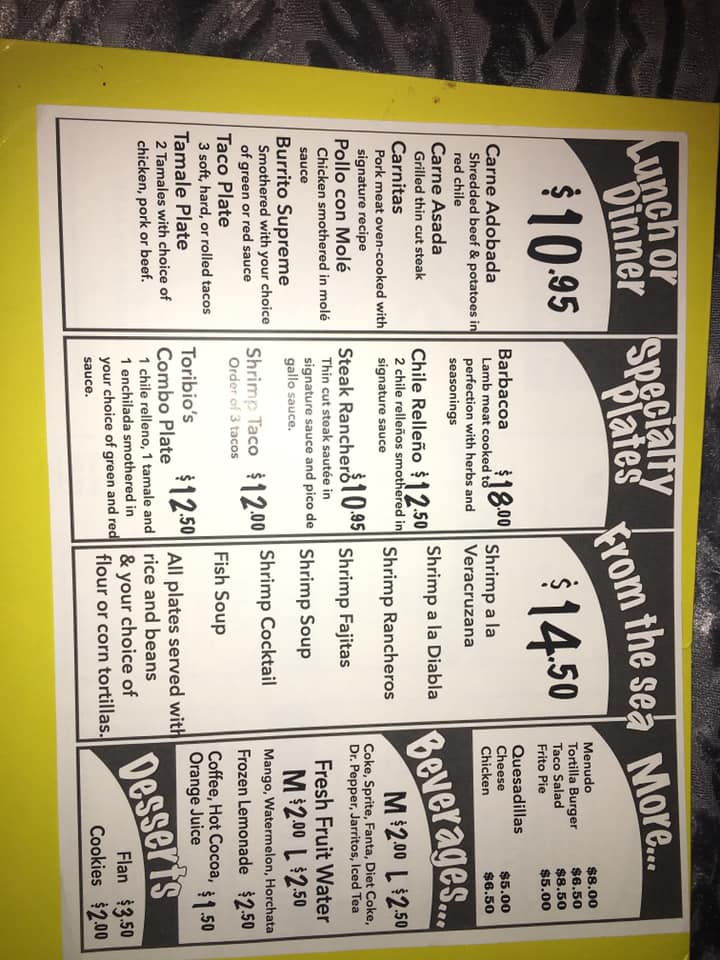 Lunch or
Dinner
$10.95
Carne Adobada
Shredded beef & potatoes in
red chile
Carne Asada
Grilled thin cut steak
Carnitas
Pork meat oven-cooked with
signature recipe
Pollo con Molé
Chicken smothered in molé
sauce
Burrito Supreme
Smothered with your choice
of green or red sauce
Taco Plate
3 soft, hard, or rolled tacos
Tamale Plate
2 Tamales with choice of
chicken, pork or beef.
Specialty
Plates
Barbacoa $18.00
Lamb meat cooked to
perfection with herbs and
seasonings
Chile Relleño $12.50
2 chile relleños smothered in
signature sauce
Steak Ranchero $10.95
Thin cut steak sautée in
signature sauce and pico de
gallo sauce.
Shrimp Taco $12.00
Order of 3 tacos
Toribio's
Combo Plate $12.50
1 chile relleno, 1 tamale and
1 enchilada smothered in
your choice of green and red
sauce.
From the sea
$14.50
Shrimp a la
Veracruzana
Shrimp a la Diabla
Shrimp Rancheros
Shrimp Fajitas
Shrimp Soup
Shrimp Cocktail
Fish Soup
All plates served with
rice and beans
& your choice of
flour or corn tortillas.
More...
Menudo $8.00
Tortilla Burger $6.50
Taco Salad $8.50
Frito Pie $5.00
Quesadillas
Cheese $5.00
Chicken $6.50
Beverages...
M $2.00 L $2.50
Coke, Sprite, Fanta, Diet Coke,
Dr. Pepper, Jarritos, Iced Tea
Fresh Fruit Water
M $2.00 L $2.50
Mango, Watermelon, Horchata
Frozen Lemonade $2.50
Coffee, Hot Cocoa, $1.50
Orange Juice
Desserts
Flan $3.50
Cookies $2.00